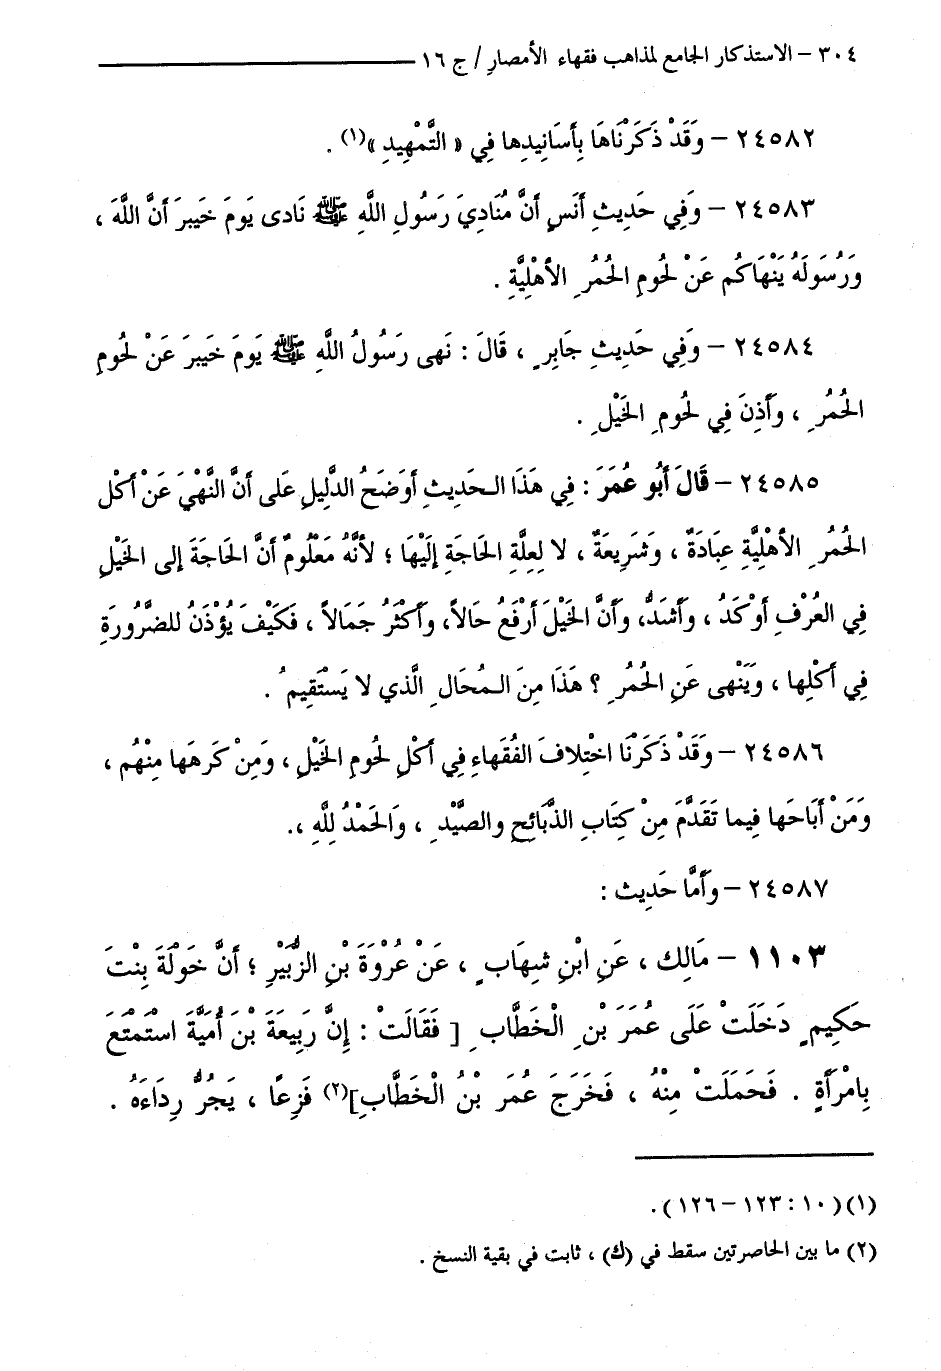 ٣٠٤ – الاستذكار الجامع لمذاهب فقهاء الأمصار / ج ١٦
٢٤٥٨٢ – وَقَدْ ذَكَرْنَاهَا بِأَسَانِيدِها فِي « التَّمْهِيدِ »(١) .
٢٤٥٨٣ – وَفِي حَدِيثِ أَنَسٍ أَنَّ مُنَادِيَ رَسُولِ اللَّهِ ﷺ نَادى يَومَ خَيبرَ أَنَّ اللَّهَ ،
وَرُسَولَهُ يَنْهَاكُم عَنْ لُحومِ الحُمُرِ الأهْلِيَّةِ .
٢٤٥٨٤ – وَفِي حَدِيثِ جَابِرٍ ، قَالَ : نَهى رَسُولُ اللَّهِ ﷺ يَومَ خَيبرَ عَنْ لُحومِ
الحُمُرِ ، وأَذِنَ فِي لُحومِ الخَيْلِ .
٢٤٥٨٥ – قَالَ أَبُو عُمَرَ : فِي هَذَا الـحَديثِ أَوضَحُ الدَّلِيلِ عَلى أَنَّ النَّهْيَ عَنْ أَكْلِ
الحُمُرِ الأهْلِيَّةِ عِبَادَةٌ ، وَشَرِيعَةٌ ، لا لِعِلَّةِ الحَاجَةِ إِلَيْهَا ؛ لأنَّهُ مَعْلُومٌ أَنَّ الحَاجَةَ إلى الخَيْلِ
فِي العُرْفِ أَوْكَدُ ، وأَشَدُّ، وأَنَّ الخَيْلَ أَرْفَعُ حَالاً، وأَكْثَرُ جَمَالاً ، فَكَيْفَ يُؤْذَنُ للضَّرُورَةِ
فِي أَكْلِها ، وَيَنْهى عَنِ الحُمُرِ ؟ هَذَا مِنَ الـمُحَالِ الَّذي لا يَسْتَقِيمُ .
٢٤٥٨٦ – وَقَدْ ذَكَرْنَا اخْتِلافَ الفُقَهاءِ فِي أَكْلِ لُحومِ الخَيْلِ ، وَمِنْ كَرهَها مِنْهُم ،
وَمَنْ أَبَاحَها فِيما تَقَدَّمَ مِنْ كِتَابِ الذَّبَائِحِ والصَّيْدِ ، وَالحَمْدُ للَّهِ ،.
٢٤٥٨٧ – وأَمَّا حَدِيث :
١١٠٣ – مَالِك ، عَنِ ابْنِ شِهَابٍ ، عَنْ عُرْوَةَ بْنِ الزُّبَيْرِ ؛ أَنَّ خَوْلَةَ بِنْتَ
حَكِيمٍ دَخَلَتْ عَلَى عُمَرَ بْنِ الْخَطَّابِ [ فَقَالَتْ : إِنَّ رَبِيعَةَ بْنَ أُمَيَّةَ اسْتَمْتَعَ
بِامْرَأَةٍ . فَحَمَلَتْ مِنْهُ ، فَخَرَجَ عُمَرَ بْنُ الْخَطَّابِ](٢) فَزِعًا ، يَجُرُّ رِدَاءَهُ .
(١)(١٠ : ١٢٣ – ١٢٦) .
(٢) ما بين الحاصرتين سقط في (ك) ، ثابت في بقية النسخ .